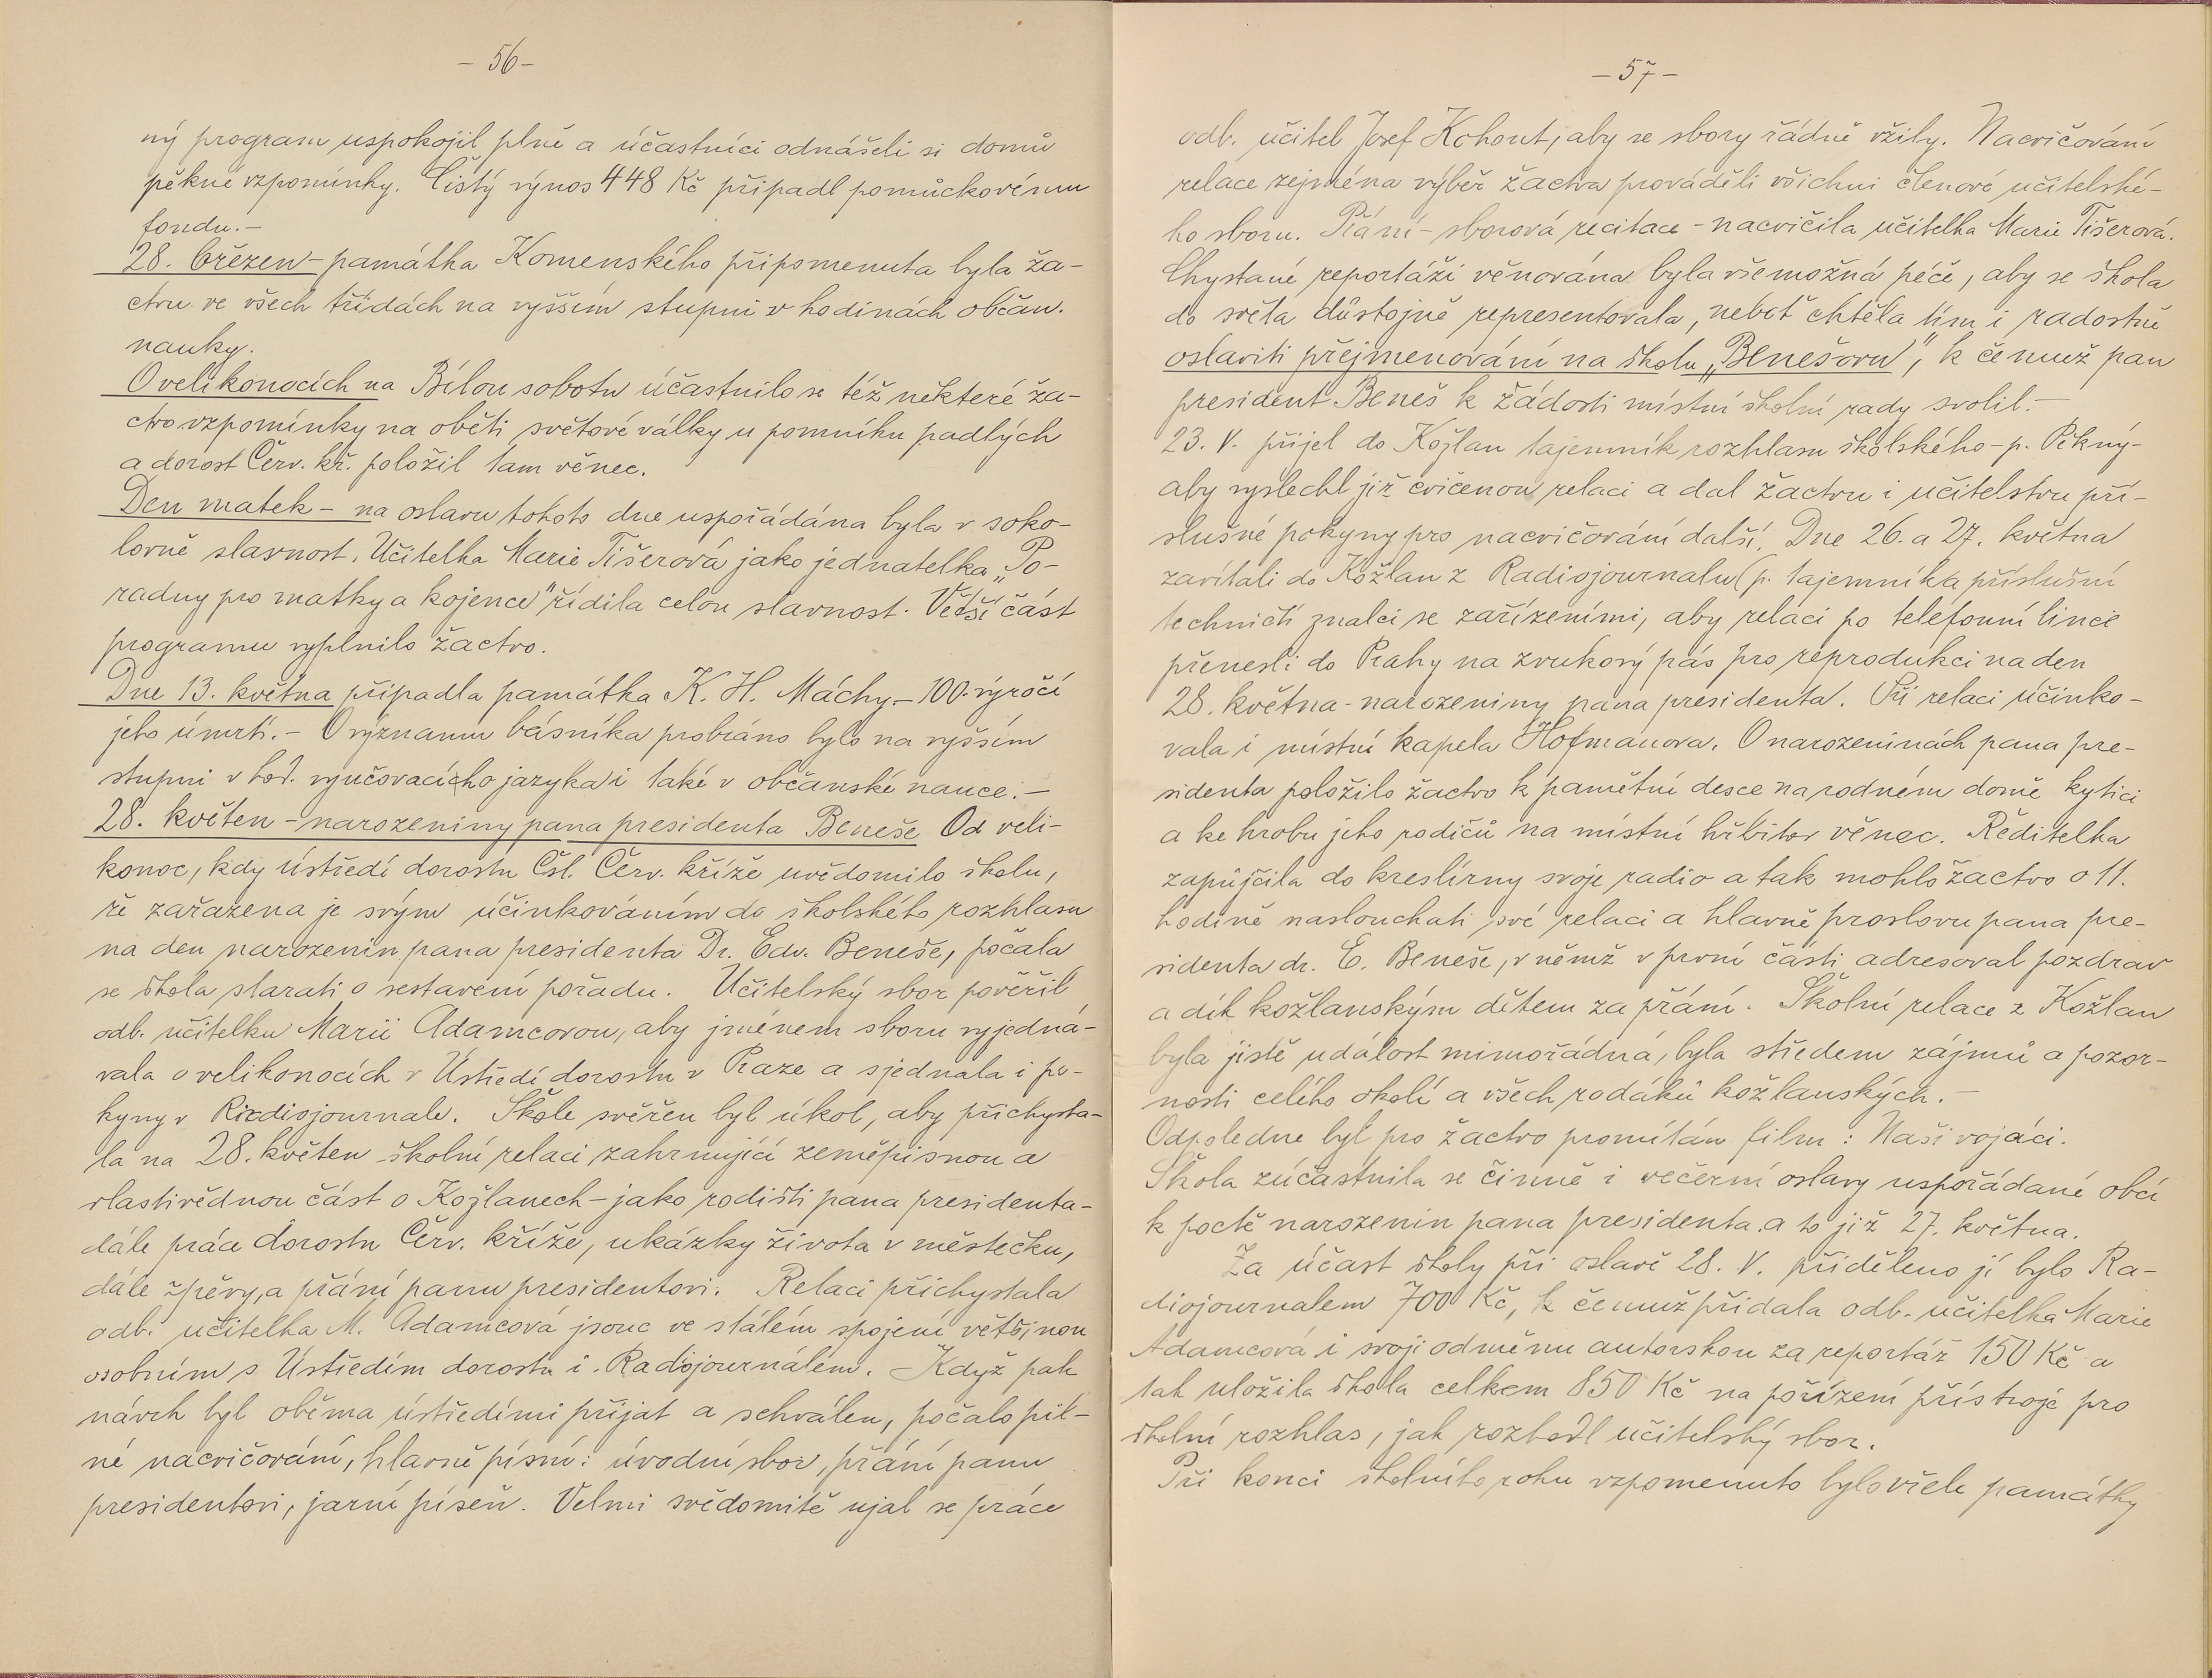 - 56 -
ný program uspokojil plně a účastníci odnášeli si domů
pěkné vzpomínky. Čistý výnos 448 Kč připadl pomůckovému
fondu. -
28. březen - památka Komenského připomenuta byla ža-
ctvu ve všech třídách na vyšším stupni v hodinách občan.
nauky.
O velikonocích na Bílou sobotu účastnilo se též některé ža-
ctvo vzpomínky na oběti světové války u pomníku padlých
a dorost Červ. kř. položil tam věnec.
Den matek - na oslavu tohoto dne uspořádána byla v soko-
lovně slavnost. Učitelka Marie Tišerová jako jednatelka „Po-
radny pro matky a kojence" řídila celou slavnost. Větší část
programu vyplnilo žactvo.
Dne 13. května připadla památka K. H. Máchy - 100. výročí
jeho úmrtí. - O významu básníka probráno bylo na vyšším
stupni v hod. vyučovacícho jazyka i také v občanské nauce. -
28. květen - narozeniny pana presidenta Beneše Od veli-
konoc, kdy ústředí dorostu Čsl. Červ. kříže uvědomilo školu,
že zařazena je svým účinkováním do školského rozhlasu
na den narozenin pana presidenta Dr. Edv. Beneše, počala
se škola starati o sestavení pořadu. Učitelský sbor pověřil
odb. učitelku Marii Adamcovou, aby jménem sboru vyjedná-
vala o velikonocích v Ústředí dorostu v Praze a sjednala i po-
kyny v Radiojournale. Škole svěřen byl úkol, aby přichysta-
la na 28. květen školní relaci zahrnující zeměpisnou a
vlastivědnou část o Kožlanech - jako rodišti pana presidenta -
dále práce dorostu Červ. kříže, ukázky života v městečku,
dále zpěvy, a přání panu presidentovi. Relaci přichystala
odb. učitelka M. Adamcová jsouc ve stálém spojení většinou
osobním s Ústředím dorostu i Radiojournálem. - Když pak
návrh byl oběma ústředími přijat a schválen, počalo pil-
né nacvičování, hlavně písní: úvodní sbor, přání panu
presidentovi, jarní píseň. Velmi svědomitě ujal se práce
- 57 -
odb. učitel Josef Kohout, aby se sbory řádně vžily. Nacvičování
relace zejména výběr žactva prováděli všichni členové učitelské-
ho sboru. Přání - sborová recitace - nacvičila učitelka Marie Tišerová.
Chystané reportáži věnována byla všemožná péče, aby se škola
do světa důstojně representovala, neboť chtěla tím i radostně
oslaviti přejmenování na školu „Benešovu", k čemuž pan
president Beneš k žádosti místní školní rady svolil. -
23. V. přijel do Kožlan tajemník rozhlasu školského - p. Pěkný -
aby vyslechl již cvičenou relaci a dal žactvu i učitelstvu pří-
slušné pokyny pro nacvičování další. Dne 26. a 27. května
zavítali do Kožlan z Radiojournalu (p. tajemník a příslušní
techničtí znalci se zařízeními, aby relaci po telefonní lince
přenesli do Prahy na zvukový pás pro reprodukci na den
28. května - narozeniny pana presidenta. Při relaci účinko-
vala i místní kapela Hofmanova. O narozeninách pana pre-
sidenta položilo žactvo k pamětní desce na rodném domě kytici
a ke hrobu jeho rodičů na místní hřbitov věnec. Ředitelka
zapůjčila do kreslírny svoje radio a tak mohlo žactvo o 11.
hodině naslouchati své relaci a hlavně proslovu pana pre-
sidenta dr. E. Beneše, v němž v první části adresoval pozdrav
a dík kožlanským dětem za přání. Školní relace z Kožlan
byla jistě událost mimořádná, byla středem zájmů a pozor-
nosti celého okolí a všech rodáků kožlanských. -
Odpoledne byl pro žactvo promítán film: Naši vojáci.
Škola zúčastnila se činně i večerní oslavy uspořádané obcí
k poctě narozenin pana presidenta a to již 27. května.
Za účast školy při oslavě 28. V. přiděleno jí bylo Ra-
diojournalem 700 Kč, k čemuž přidala odb. učitelka Marie
Adamcová i svoji odměnu autorskou za reportáž 150 Kč a
tak uložila škola celkem 850 Kč na pořízení přístroje pro
školní rozhlas, jak rozhodl učitelský sbor.
Při konci školního roku vzpomenuto bylo vřele památky